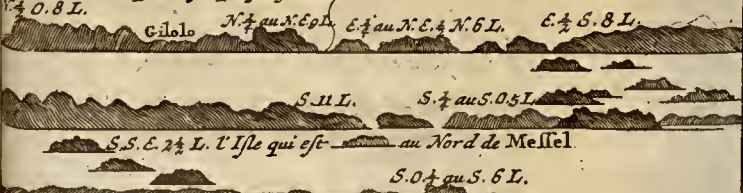 N.½ O.8 L.
Gilolo
N.¼ au N.E 9 L.
E.¼ au N.E.¼ N. 6 L.
E.½ S. 8 L.
S. 11 L.
S.¼ au S.O 5 L
S.S.E. 2½ L. l'Isle qui est au Nord de Messel
S.O.¼ au S. 6 L.